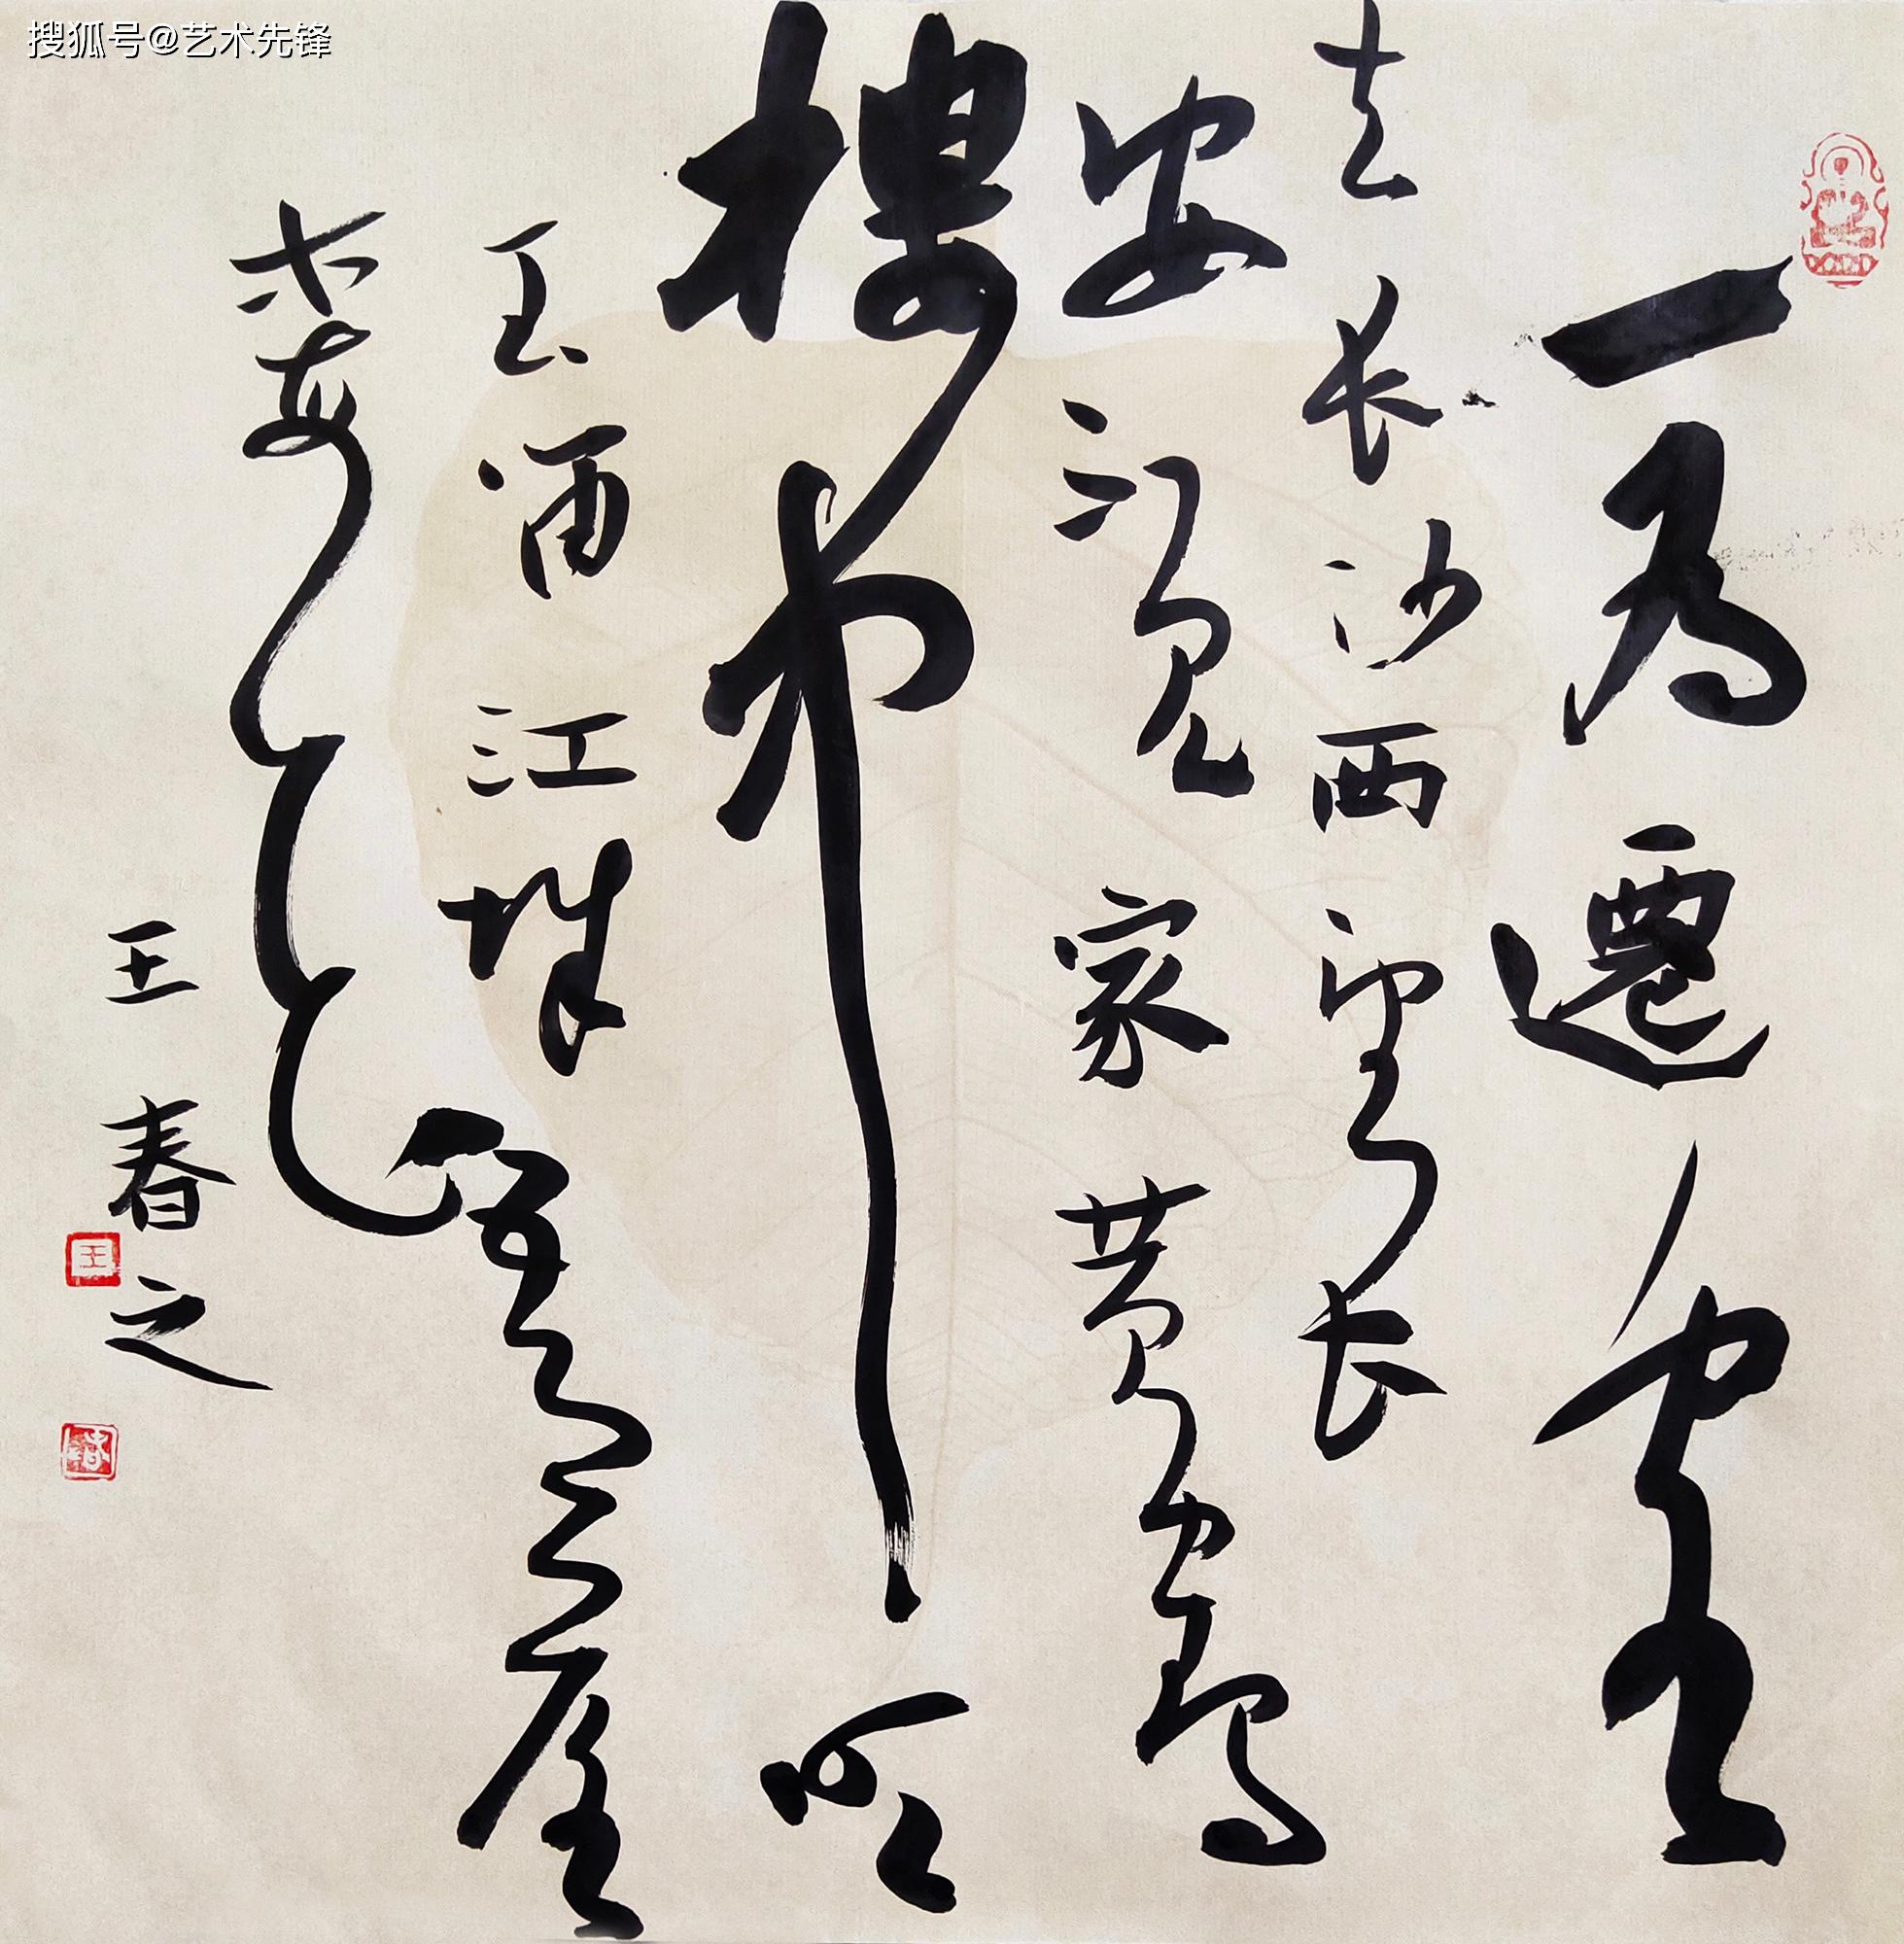 搜狐号@艺术先锋
一為遷客
去长沙西望长
安不見家黄鶴
樓中吹
玉笛江城五月落
梅花
王春之
王
春